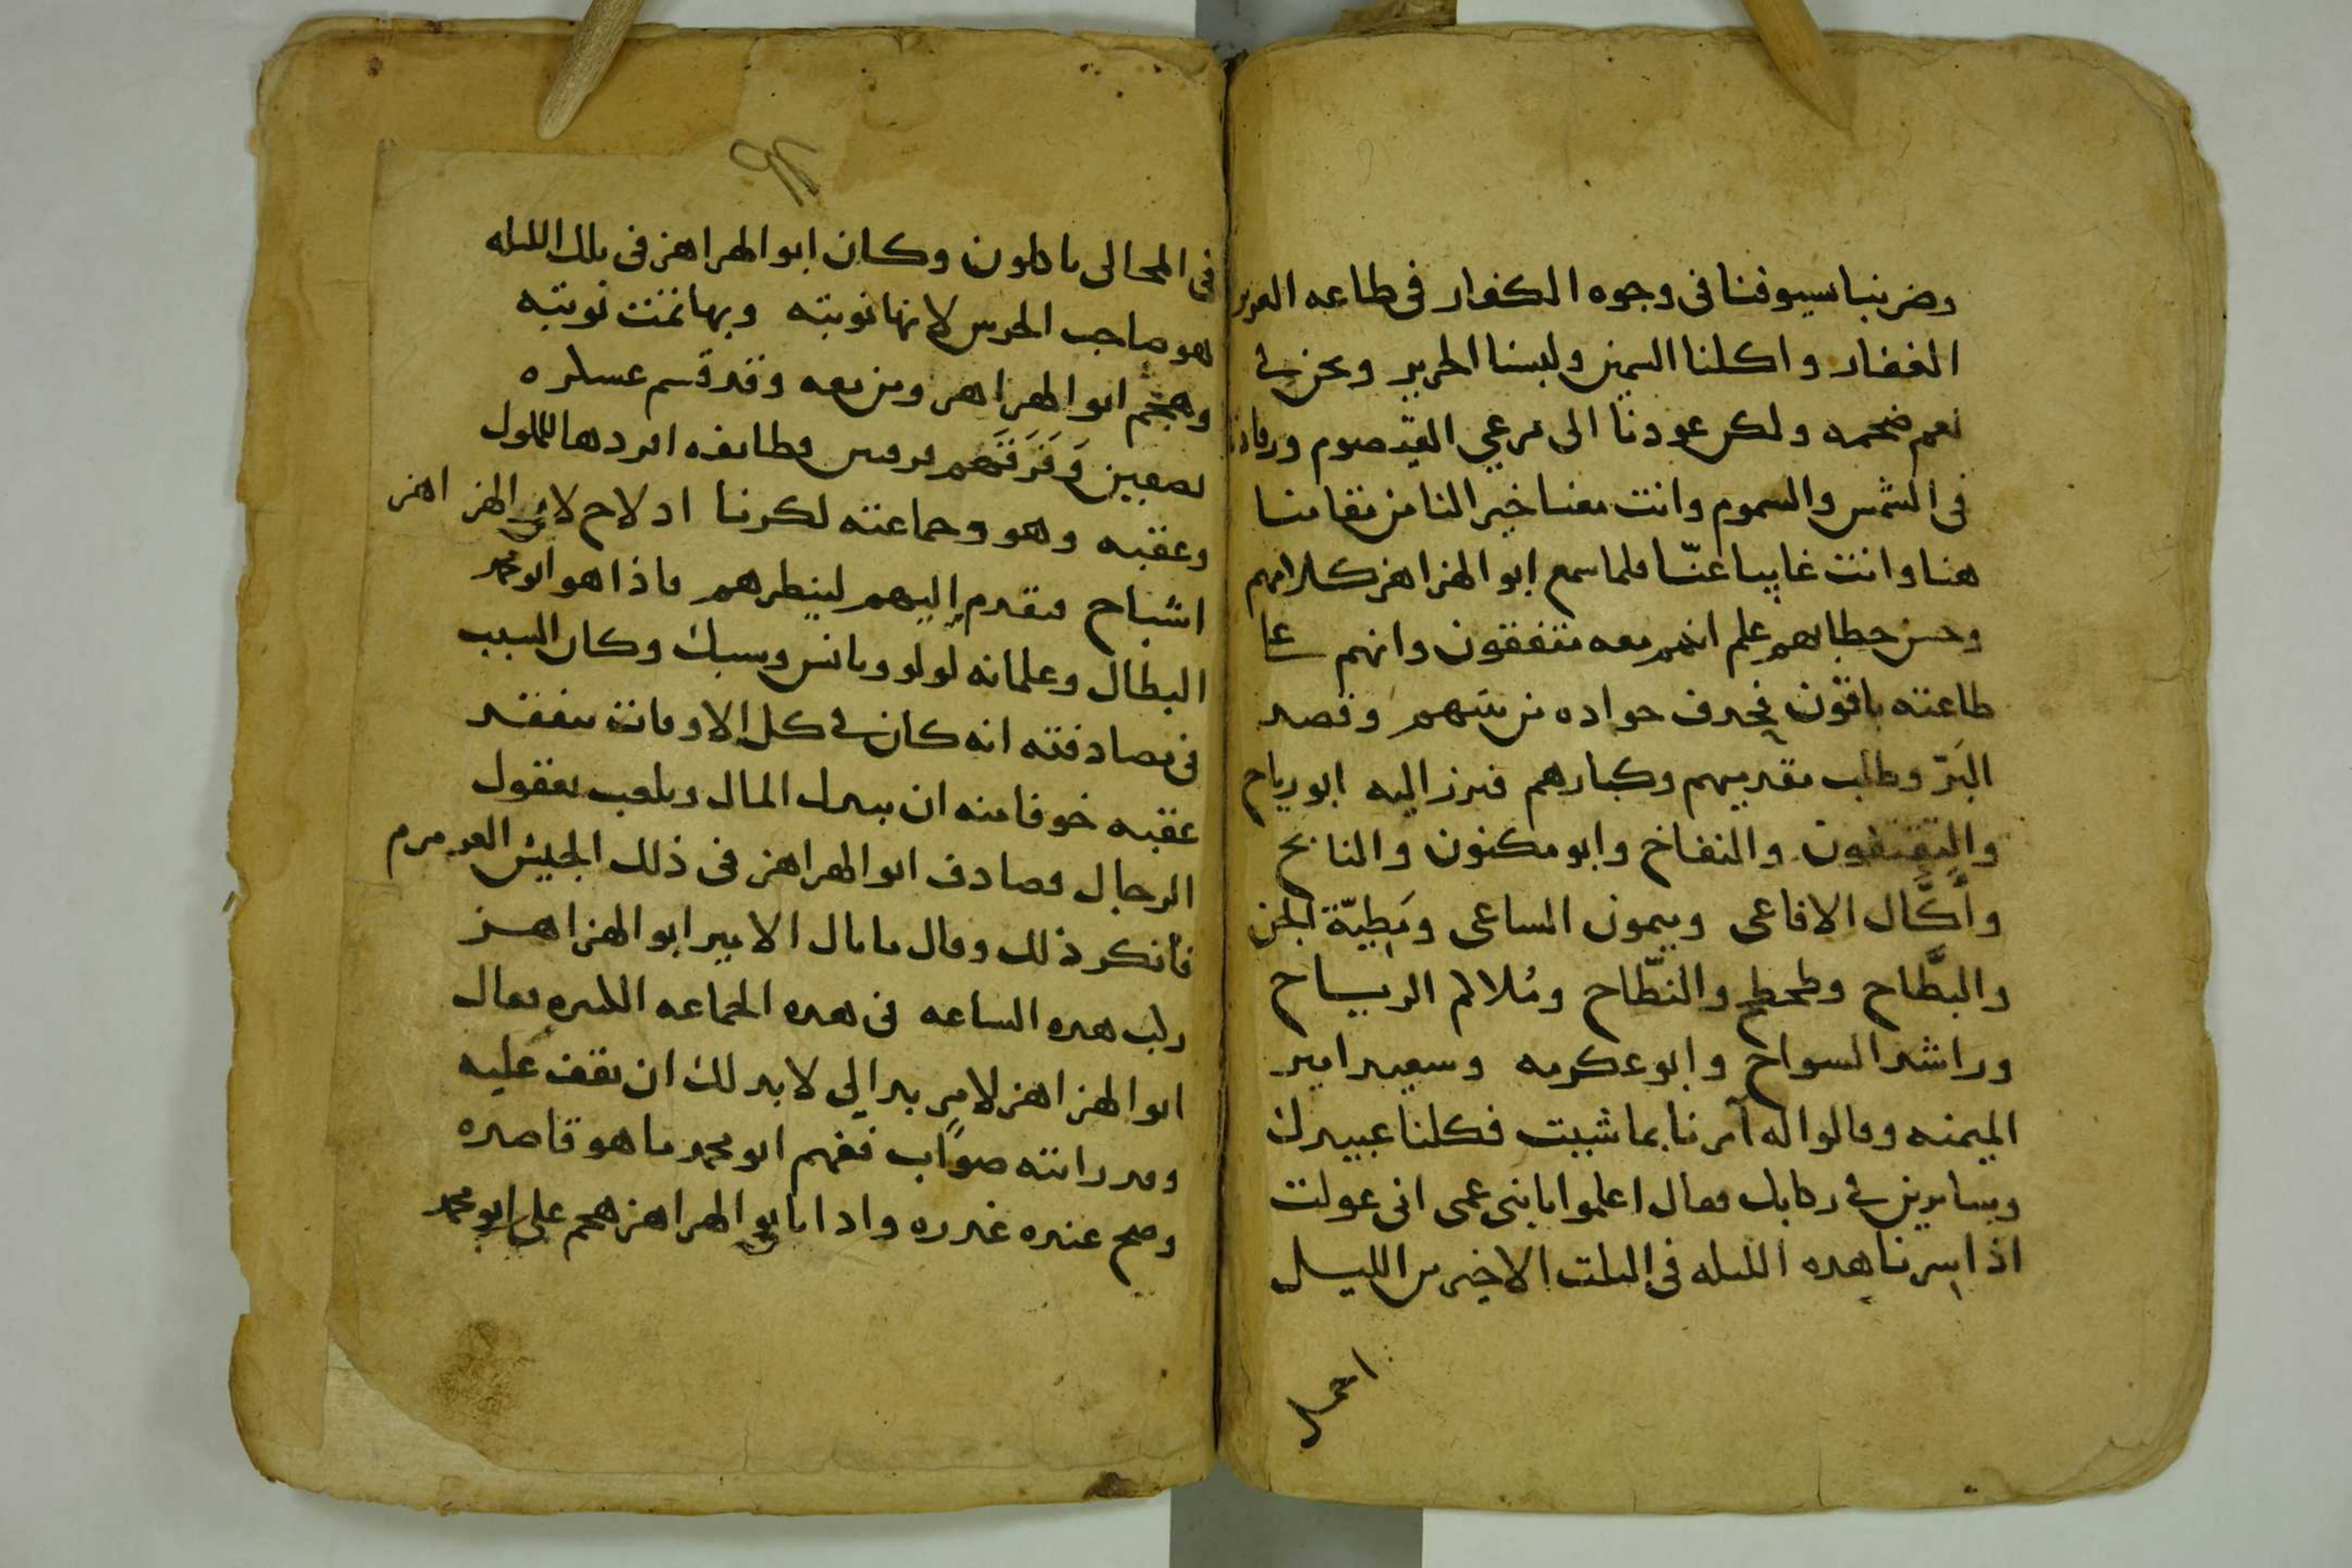 وضربنا سيوفنا فى وجوه الكفار فى طاعه العزيز
الغفار واكلنا السمين ولبسنا الحرير ونحن فى
نعم ضخمه ولكن عودنا الى مرعى القيصوم
فى الشمس والسموم وانت معنا خير لنا من مقامنا
هنا وانت غايبا عنّا فلما سمع ابو الهزاهز كلامهم
وحسن خطابهم علم انهم معه متفقون وانهم على
طاعته باقون فحرف جواده من بينهم وقصد
البَرّ وطلب مقدميهم وكبارهم فبرز اليه ابو رياح
والنفاخ وابو مكنون والنابح
وأكَّال الافاعى وميمون الساعى ومَطِيّة الجن
والبطَّاح وطحطح والنطّاح ومُلالم الرياح
وراشد السواح وابو عكرمه وسعيد امير
الميمنه وقالوا له آمرنا بما شيت فكلنا عبيدك
وسايرين فى ركابك فقال اعلموا يا بنى عمى انى عولت
اذا سرنا هده الليله فى الثلت الاخير من الليل
فى المجالى وكان ابو الهزاهز فى تلك الليله
هو صاحب الحرس لانها نوبته وبها تمت نوبته
وهجم ابو الهزاهز ومن معه وقد قسم عسكره
نصفين وَفَرَقَهم فرقتين فطايفه افردها للملوك
وعقبه وهو وجماعته لكرنا اد لاح لابى الهزاهز
اشباح فتقدم إليهم لينظرهم فاذا هو ابو محمد
البطال وغلمانه لولو ويانس وسبك وكان السبب
فى مصادفته انه كان فى كل الاوقات يتفقد
عقبه خوفا منه ان يبدل المال ويلعب بعقول
الرجال فصادف ابو الهزاهز فى ذلك الجيش العرمرم
فأنكر ذلك وقال ما بال الامير ابو الهزاهز
ركب هده الساعه فى هده الجماعه الكثيره فقال
ابو الهزاهز لامرٍ بدا لى لا بد لك ان تقف عليه
وقد رايته صوابًا ففهم ابو محمد ما هو قاصده
وصح عنده غدره واد ا بابو الهزاهز هجم على ابو محمد